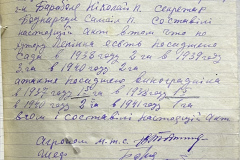 зн. Бараболя Николай П. Секретар
Бондарчук Самоил П. Составили
настоящий акт в том что по
хутору Ленина есть посаджено
сади в 1938 году 2 га в 1939 году
3 га в 1940 году 2 га
также посаджено виноградніка
в 1937 году 15 га в 1938
в 1940 году 2 га в 1941 году 1 га
в чом и составили настоящий акт
Агроном м.т.с.